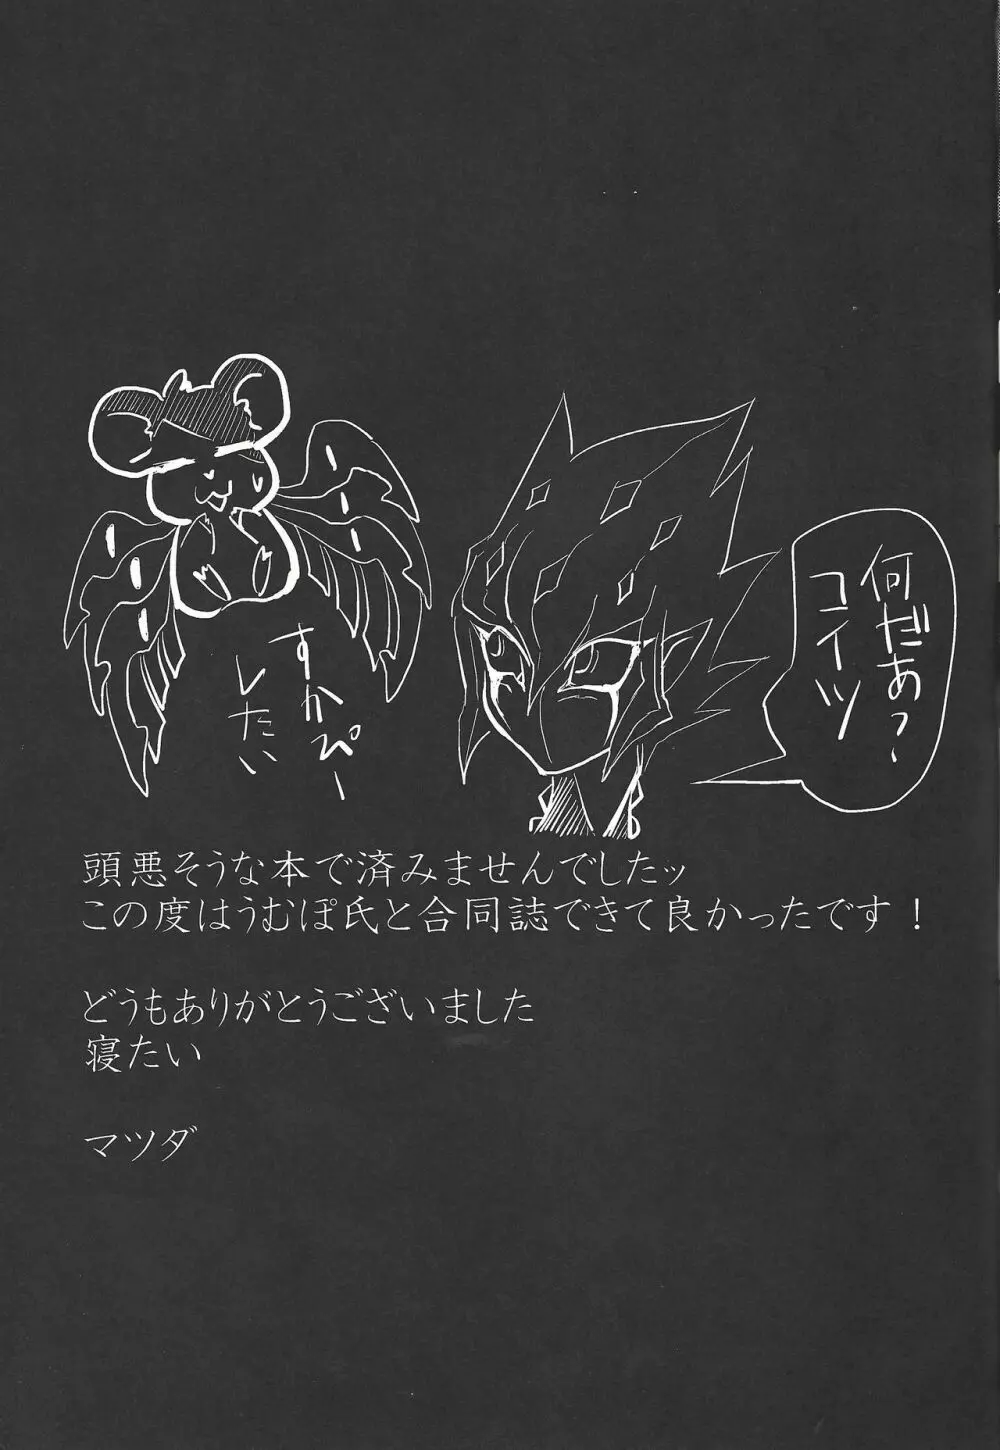 何だぁ？
コイツ
すかぴー
したい
頭悪そうな本で済みませんでしたッ
この度はうむぽ氏と合同誌できて良かったです！
どうもありがとうございました
寝たい
マツダ